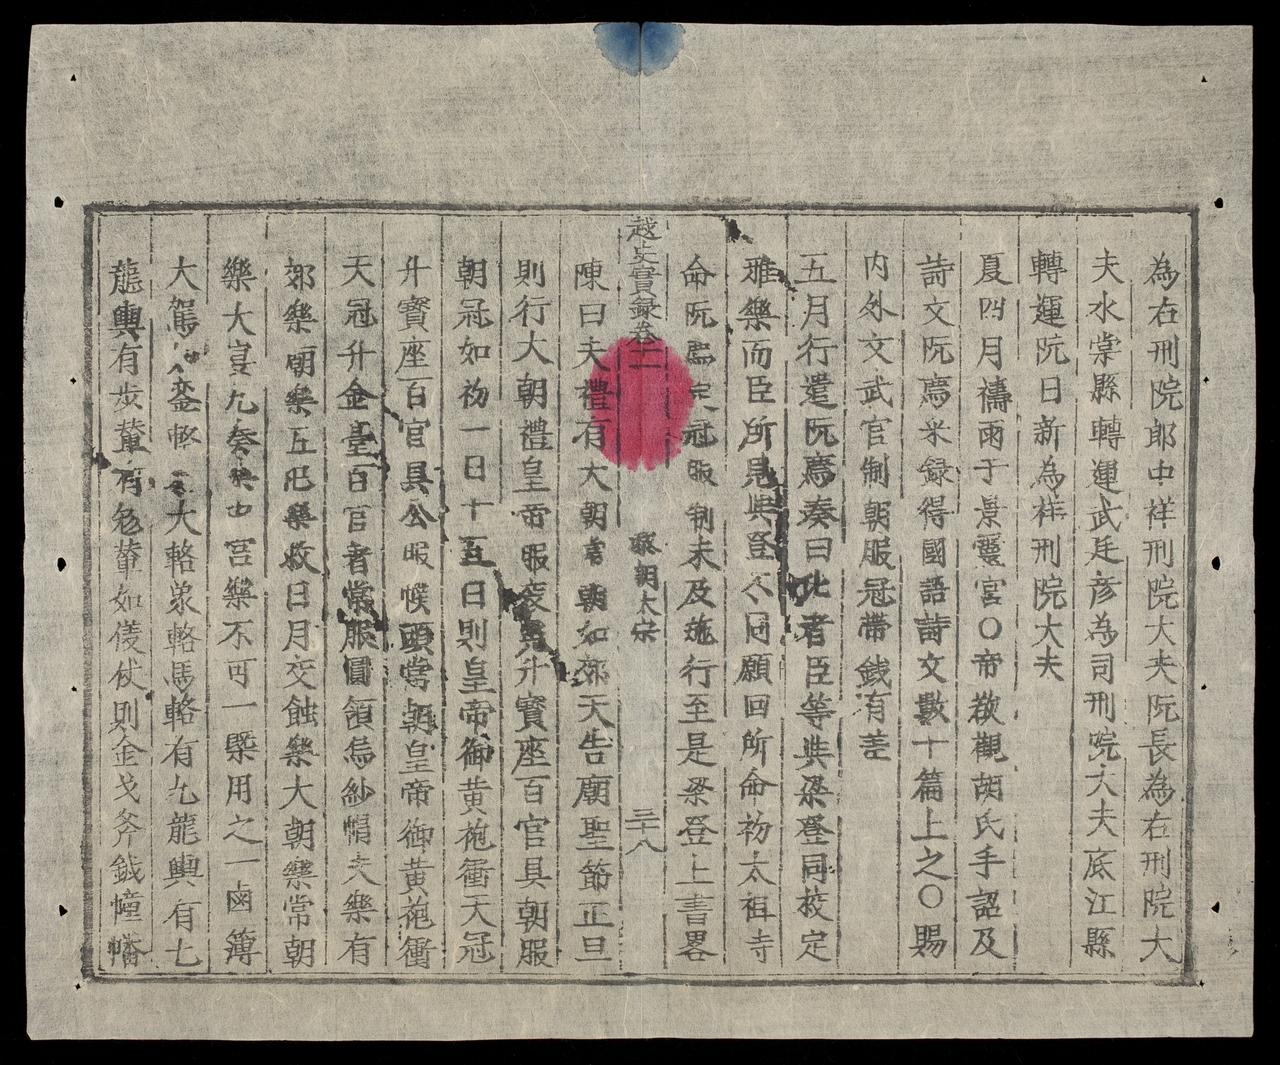 為右刑院郎中祥刑院大夫阮長為右刑院大
夫水棠縣轉運武廷彦為司刑院大夫底江縣
轉運阮日新為祥刑院大夫
夏四月禱雨于景靈宮〇帝欲觀胡氏手詔及
詩文阮廌米録得國語詩文數十篇上之〇賜
内外文武官制朝服冠帶銭有差
五月行遣阮廌奏曰此者臣等與梁登同校定
雅樂而臣所見與登不同願回所命初太祖寺
命阮廌定冠服制未及施行至是梁登上書畧
越史實録卷十一
黎朝太宗
三十八
陳曰夫禮有大朝常朝如郊天告廟聖節正旦
則行大朝禮皇帝服袞冕升寶座百官具朝服
朝冠如初一日十五日則皇帝御黄袍衝天冠
升寶座百官具公服幞頭常朝皇帝御黄袍衝
天冠升金臺百官着常服圓領烏紗帽夫樂有
郊樂廟樂五祀樂救日月交蝕樂大朝樂常朝
樂大宴九奏樂宫樂不可一槩用之一鹵簿
大駕大輅象輅馬輅有九龍輿有七
龍輿有步輦有輦如儀仗則金戈斧鉞幢幡